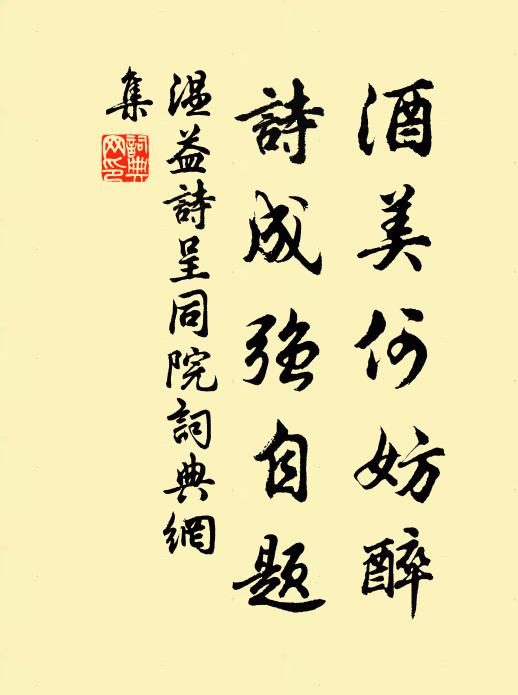 酒美何妨醉
詩成強自題
溫益詩呈同院詞典網
集
詞典
网印